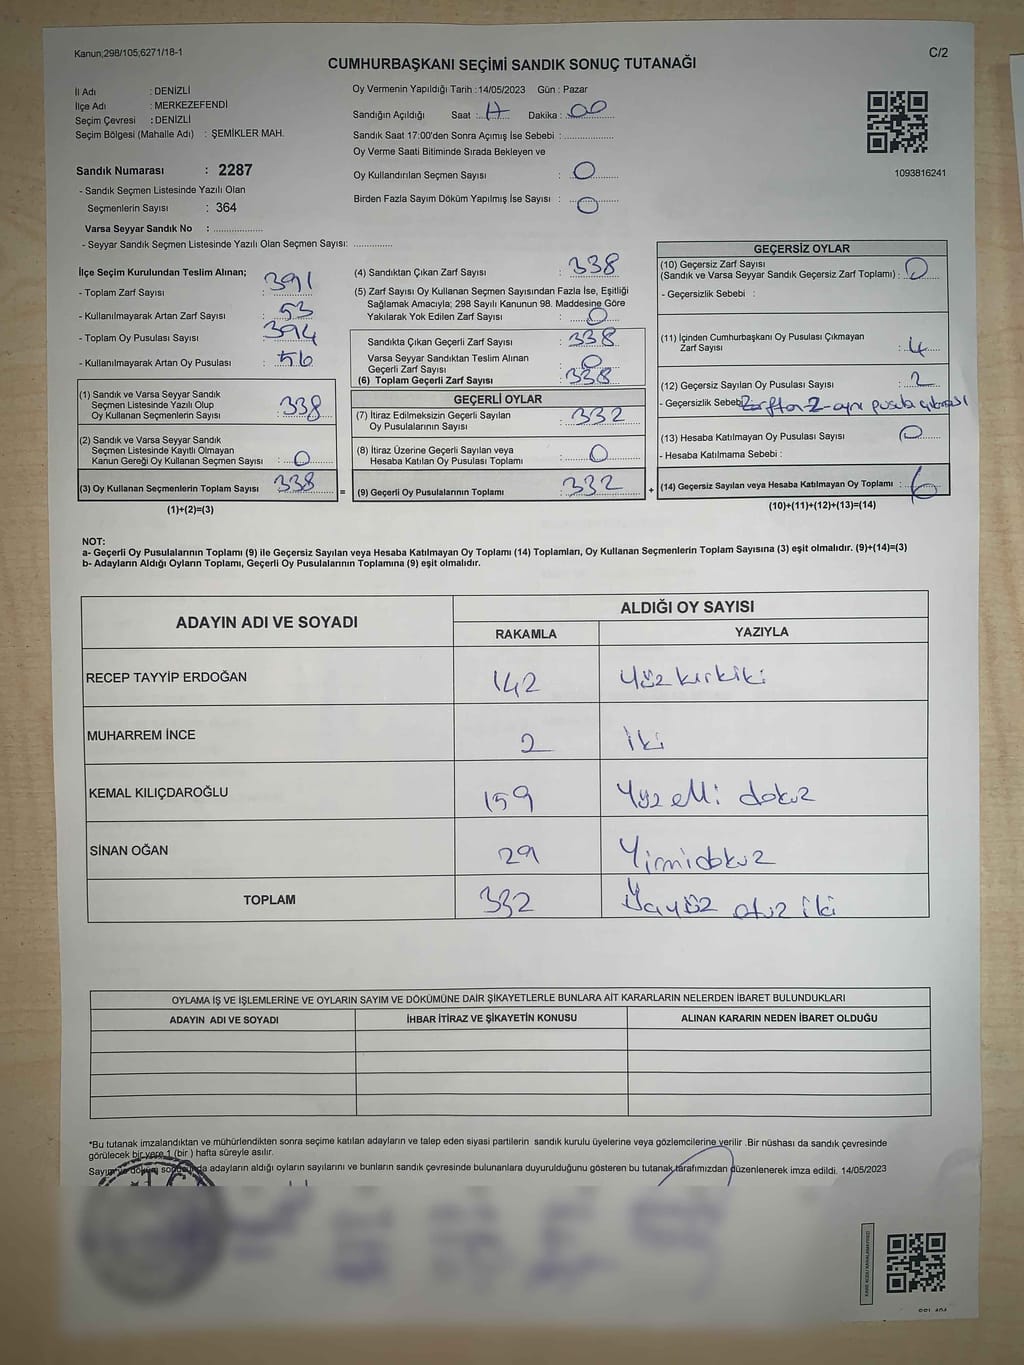 Kanun;298/105;6271/18-1
C/2
CUMHURBAŞKANI SEÇİMİ SANDIK SONUÇ TUTANAĞI
İl Adı : DENİZLİ
İlçe Adı : MERKEZEFENDİ
Seçim Çevresi : DENİZLİ
Seçim Bölgesi (Mahalle Adı) : ŞEMİKLER MAH.
Sandık Numarası : 2287
- Sandık Seçmen Listesinde Yazılı Olan
Seçmenlerin Sayısı : 364
Varsa Seyyar Sandık No : ..................
- Seyyar Sandık Seçmen Listesinde Yazılı Olan Seçmen Sayısı: ..............
Oy Vermenin Yapıldığı Tarih : 14/05/2023 Gün : Pazar
Sandığın Açıldığı Saat : 17 Dakika : 00
Sandık Saat 17:00'den Sonra Açımış İse Sebebi :..................
Oy Verme Saati Bitiminde Sırada Bekleyen ve
Oy Kullandırılan Seçmen Sayısı : 0
Birden Fazla Sayım Döküm Yapılmış İse Sayısı : 0
1093816241
İlçe Seçim Kurulundan Teslim Alınan;
- Toplam Zarf Sayısı : 391
- Kullanılmayarak Artan Zarf Sayısı : 53
- Toplam Oy Pusulası Sayısı : 394
- Kullanılmayarak Artan Oy Pusulası : 56
(1) Sandık ve Varsa Seyyar Sandık
Seçmen Listesinde Yazılı Olup
Oy Kullanan Seçmenlerin Sayısı : 338
(2) Sandık ve Varsa Seyyar Sandık
Seçmen Listesinde Kayıtlı Olmayan
Kanun Gereği Oy Kullanan Seçmen Sayısı : 0
(3) Oy Kullanan Seçmenlerin Toplam Sayısı 338
(1)+(2)=(3)
(4) Sandıktan Çıkan Zarf Sayısı : 338
(5) Zarf Sayısı Oy Kullanan Seçmen Sayısından Fazla İse, Eşitliği
Sağlamak Amacıyla; 298 Sayılı Kanunun 98. Maddesine Göre
Yakılarak Yok Edilen Zarf Sayısı : 0
Sandıkta Çıkan Geçerli Zarf Sayısı : 338
Varsa Seyyar Sandıktan Teslim Alınan
Geçerli Zarf Sayısı : 0
(6) Toplam Geçerli Zarf Sayısı : 338
GEÇERLİ OYLAR
(7) İtiraz Edilmeksizin Geçerli Sayılan
Oy Pusulalarının Sayısı : 332
(8) İtiraz Üzerine Geçerli Sayılan veya
Hesaba Katılan Oy Pusulası Toplamı : 0
= (9) Geçerli Oy Pusulalarının Toplamı : 332 +
GEÇERSİZ OYLAR
(10) Geçersiz Zarf Sayısı
(Sandık ve Varsa Seyyar Sandık Geçersiz Zarf Toplamı) : 0
- Geçersizlik Sebebi :
(11) İçinden Cumhurbaşkanı Oy Pusulası Çıkmayan
Zarf Sayısı : 4
(12) Geçersiz Sayılan Oy Pusulası Sayısı : 2
- Geçersizlik Sebebi Zarftan 2 ayrı pusula çıkması
(13) Hesaba Katılmayan Oy Pusulası Sayısı : 0
- Hesaba Katılmama Sebebi :
(14) Geçersiz Sayılan veya Hesaba Katılmayan Oy Toplamı : 6
(10)+(11)+(12)+(13)=(14)
NOT:
a- Geçerli Oy Pusulalarının Toplamı (9) ile Geçersiz Sayılan veya Hesaba Katılmayan Oy Toplamı (14) Toplamları, Oy Kullanan Seçmenlerin Toplam Sayısına (3) eşit olmalıdır. (9)+(14)=(3)
b- Adayların Aldığı Oyların Toplamı, Geçerli Oy Pusulalarının Toplamına (9) eşit olmalıdır.
ADAYIN ADI VE SOYADI
ALDIĞI OY SAYISI
RAKAMLA YAZIYLA
RECEP TAYYİP ERDOĞAN 142 Yüz kırkiki
MUHARREM İNCE 2 İki
KEMAL KILIÇDAROĞLU 159 Yüz elli dokuz
SİNAN OĞAN 29 Yirmidokuz
TOPLAM 332 Üçyüz otuz iki
OYLAMA İŞ VE İŞLEMLERİNE VE OYLARIN SAYIM VE DÖKÜMÜNE DAİR ŞİKAYETLERLE BUNLARA AİT KARARLARIN NELERDEN İBARET BULUNDUKLARI
ADAYIN ADI VE SOYADI İHBAR İTİRAZ VE ŞİKAYETİN KONUSU ALINAN KARARIN NEDEN İBARET OLDUĞU
*Bu tutanak imzalandıktan ve mühürlendikten sonra seçime katılan adayların ve talep eden siyasi partilerin sandık kurulu üyelerine veya gözlemcilerine verilir .Bir nüshası da sandık çevresinde
görülecek bir yere 1 (bir ) hafta süreyle asılır.
Sayım ve döküm sonunda adayların aldığı oyların sayılarını ve bunların sandık çevresinde bulunanlara duyurulduğunu gösteren bu tutanak tarafımızdan düzenlenerek imza edildi. 14/05/2023
T.C.